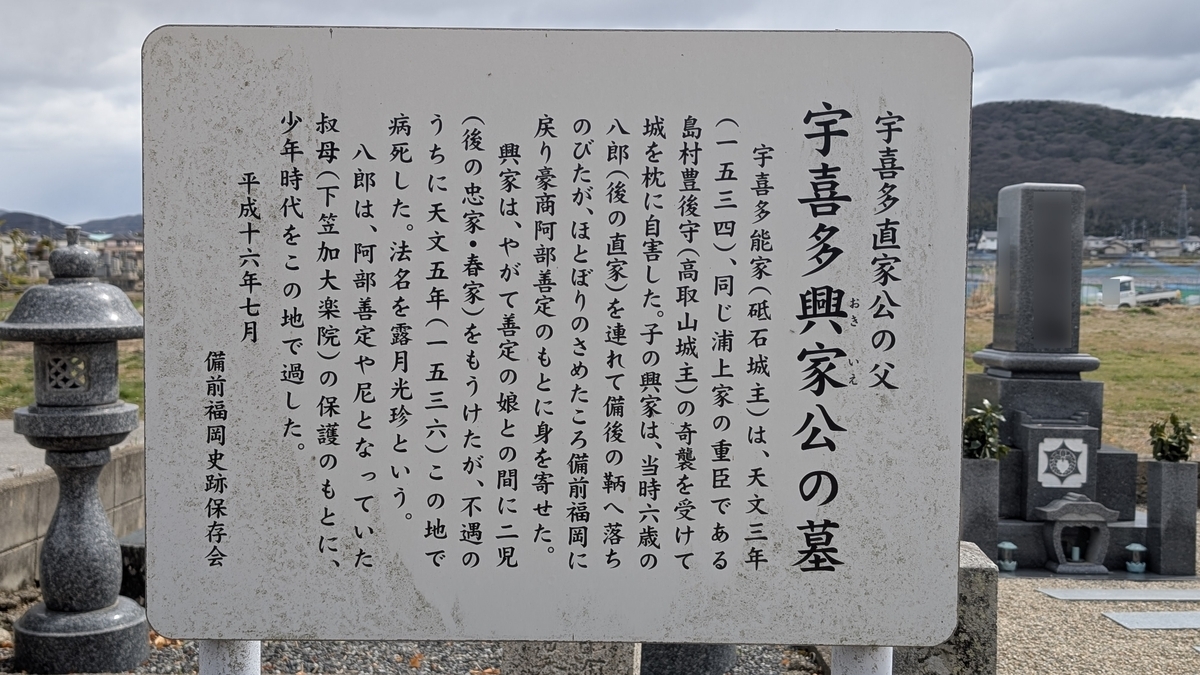 宇喜多直家公の父
宇喜多興家公の墓
おき いえ
宇喜多能家(砥石城主)は、天文三年
(一五三四)、同じ浦上家の重臣である
島村豊後守(高取山城主)の奇襲を受けて
城を枕に自害した。子の興家は、当時六歳の
八郎(後の直家)を連れて備後の鞆へ落ち
のびたが、ほとぼりのさめたころ備前福岡に
戻り豪商阿部善定のもとに身を寄せた。
興家は、やがて善定の娘との間に二児
(後の忠家・春家)をもうけたが、不遇の
うちに天文五年(一五三六)この地で
病死した。法名を露月光珍という。
八郎は、阿部善定や尼となっていた
叔母(下笠加大楽院)の保護のもとに、
少年時代をこの地で過した。
平成十六年七月
備前福岡史跡保存会